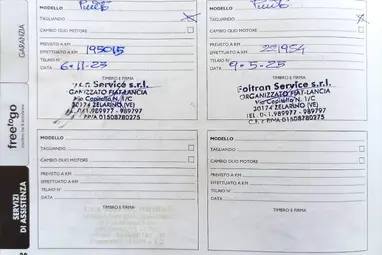 MODELLO Punto
TAGLIANDO
CAMBIO OLIO MOTORE
PREVISTO A KM
EFFETTUATO A KM 195015
TELAIO N°
DATA 6-11-23
TIMBRO E FIRMA
Service s.r.l.
ORGANIZZATO FIAT-LANCIA
Via Castello N. 1/C
30174 ZELARINO (VE)
TEL. 041.989977 - 989797
P.IVA 01508780275
MODELLO Punto
TAGLIANDO
CAMBIO OLIO MOTORE
PREVISTO A KM
EFFETTUATO A KM 221954
TELAIO N°
DATA 9-5-25
TIMBRO E FIRMA
Foltran Service s.r.l.
ORGANIZZATO FIAT-LANCIA
30174 ZELARINO (VE)
TEL. 041.989977 - 989797
01508780275
MODELLO
TAGLIANDO
CAMBIO OLIO MOTORE
PREVISTO A KM
EFFETTUATO A KM
TELAIO N°
DATA
TIMBRO E FIRMA
MODELLO
TAGLIANDO
CAMBIO OLIO MOTORE
PREVISTO A KM
EFFETTUATO A KM
TELAIO N°
DATA
TIMBRO E FIRMA
GARANZIA
freetogo
SERVIZI
DI ASSISTENZA